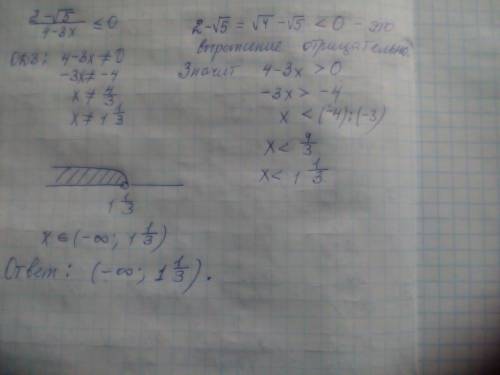 (2-√5)/(4-3x) ≤ 0
ОДЗ: 4-3x ≠ 0
-3x ≠ -4
x ≠ 4/3
x ≠ 1 1/3
2-√5 = √4 - √5 < 0 - это
выражение отрицательно.
Значит 4-3x > 0
-3x > -4
x < (-4):(-3)
x < 4/3
x < 1 1/3
1 1/3
x ∈ (-∞; 1 1/3)
Ответ: (-∞; 1 1/3).